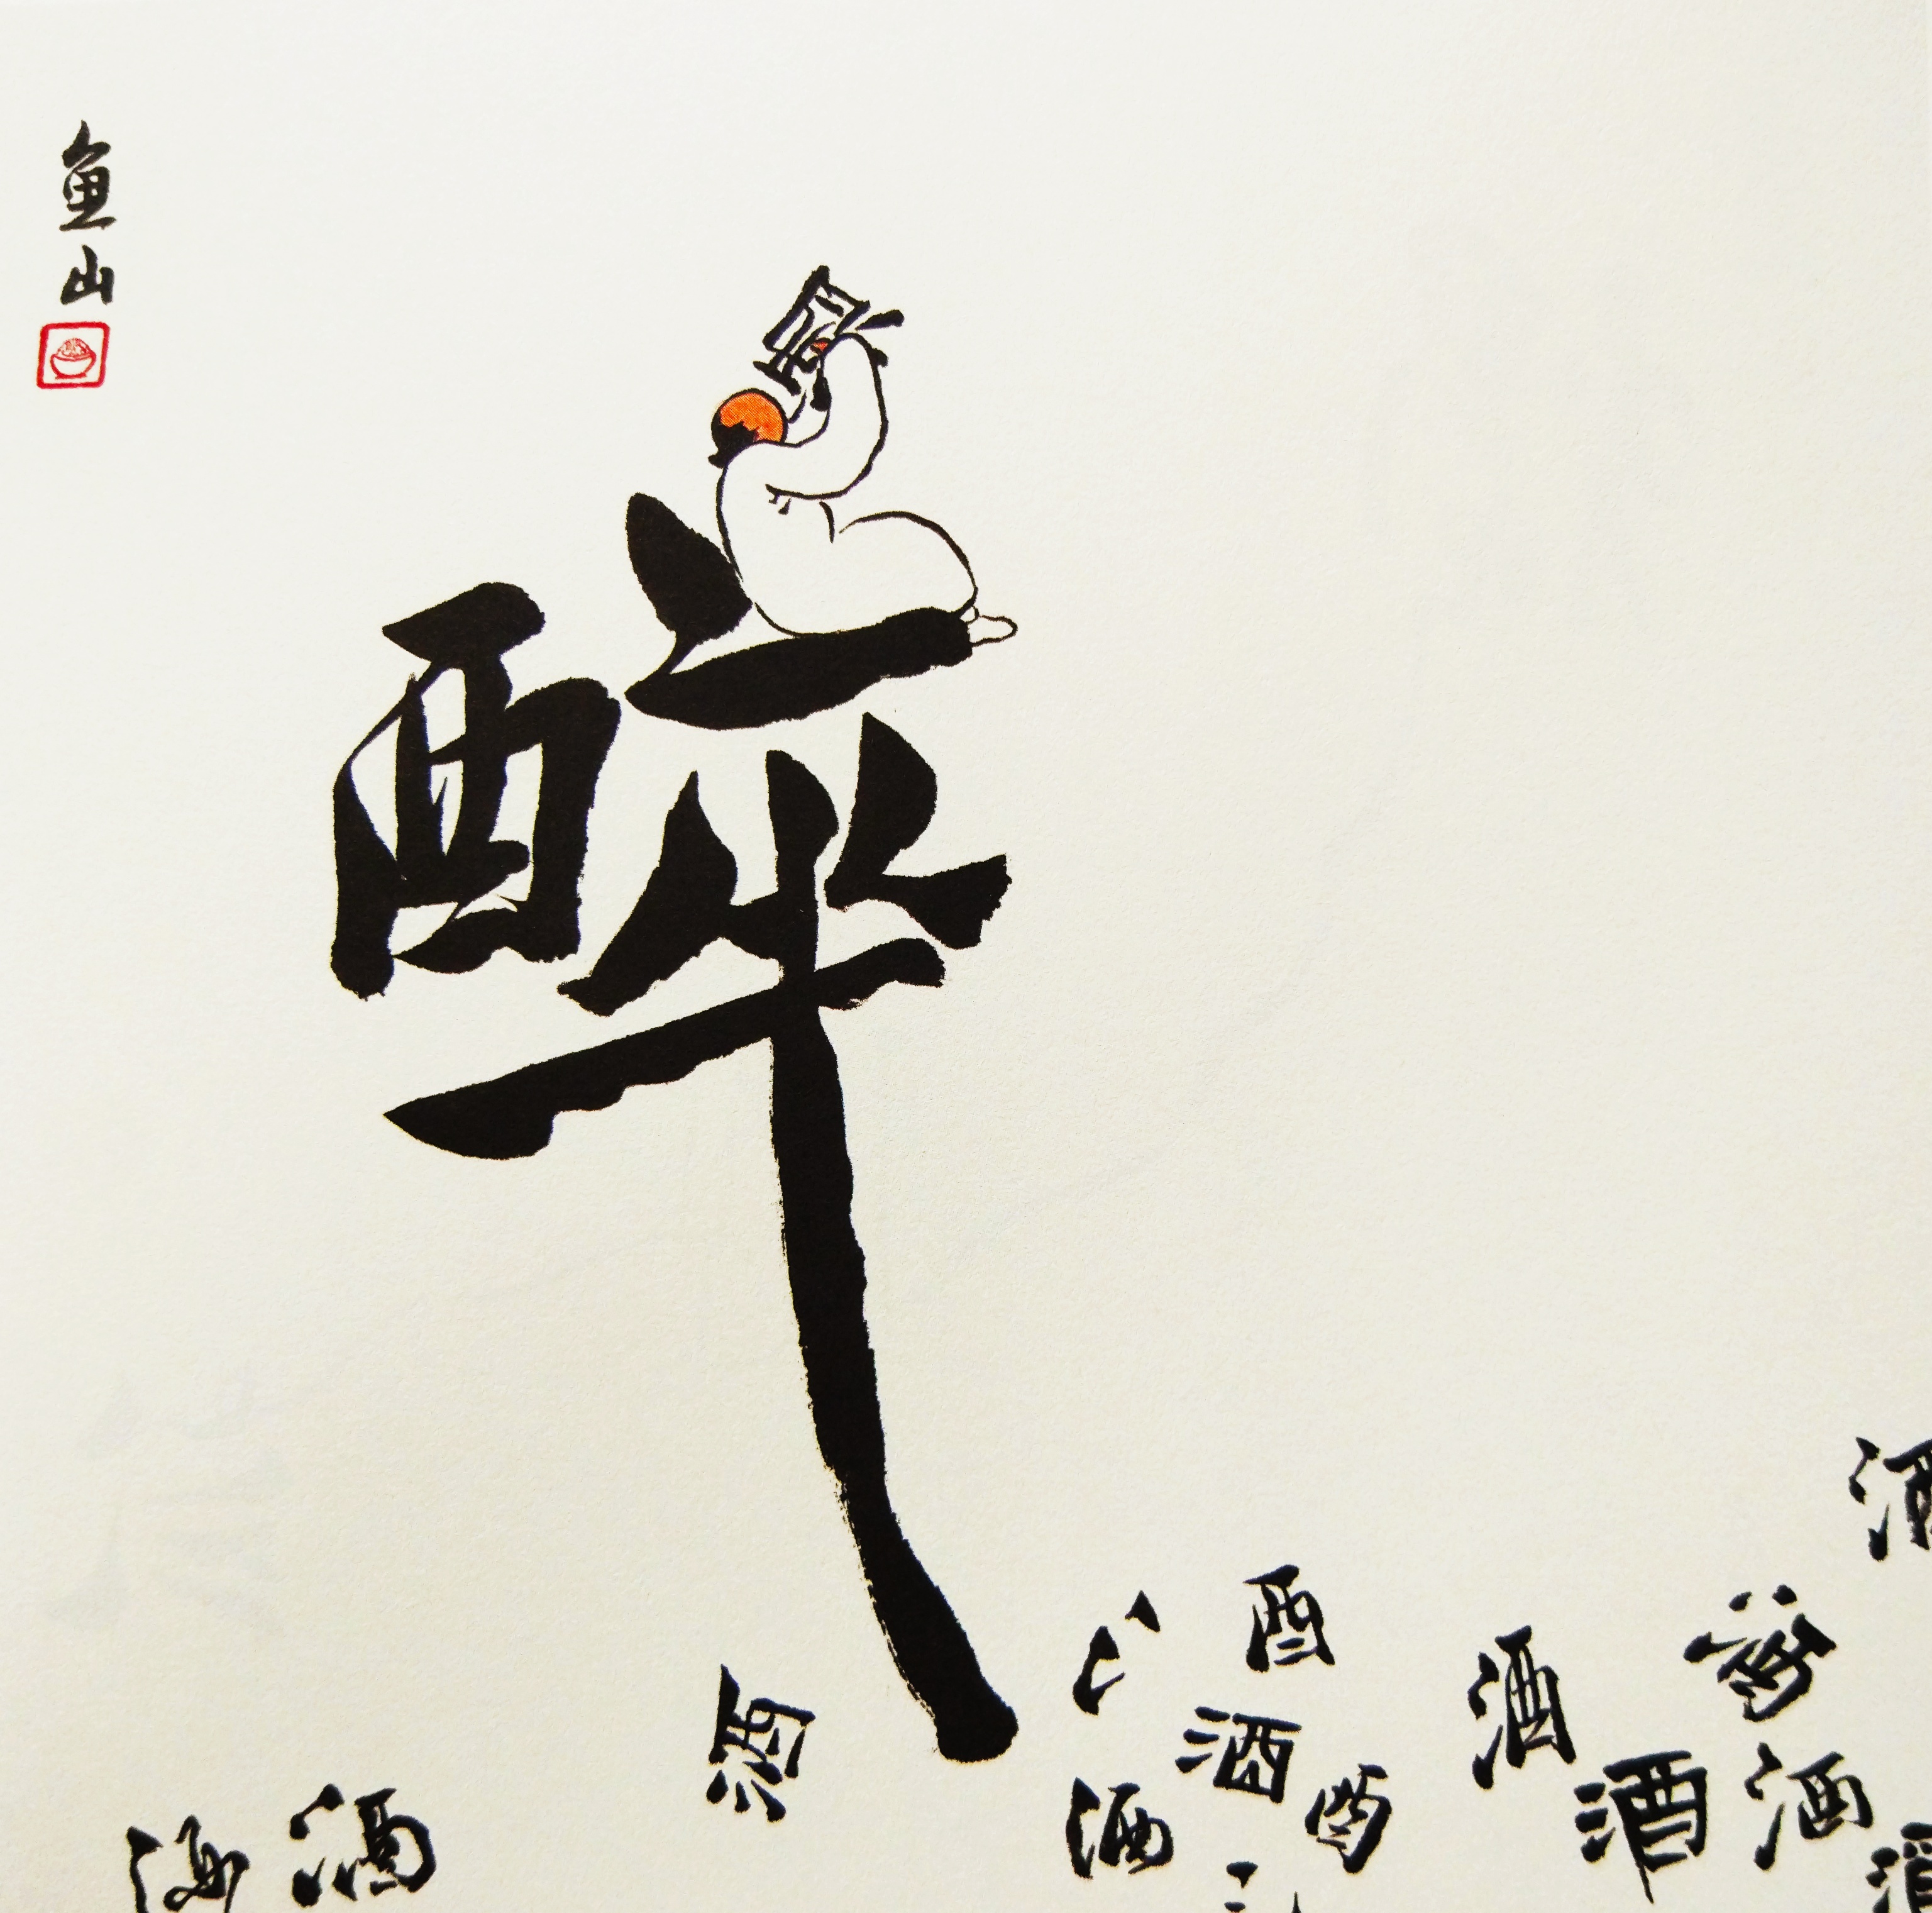 鱼山
醉
酒
酉
酒
酒
酒
酒
酒
酒
酒
酒
酒